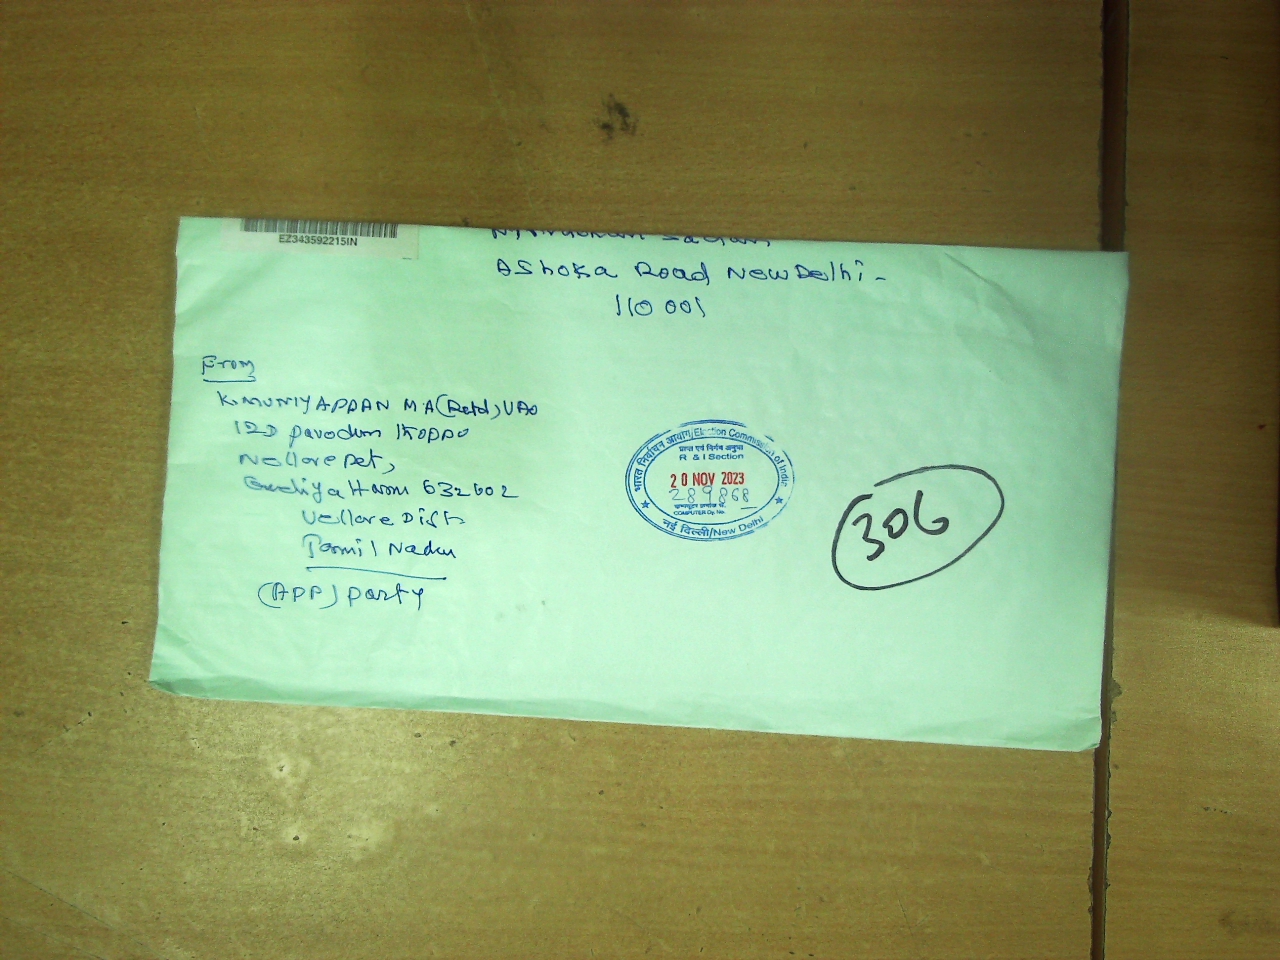 EZ343592215IN
Ashoka Road New Delhi -
110 001
From
K. MUNIYAPPAN M A (Retd), VAO
Nellorepet,
Gudiyattam 632602
Vellore Dist
Tamil Nadu
(APP) party
भारत निर्वाचन आयोग/Election Commission of India
प्राप्त एवं निर्गम अनुभाग
R & I Section
20 NOV 2023
289868
COMPUTER Dy. No.
नई दिल्ली/New Delhi
306